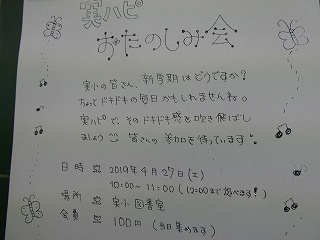 実ハピ
おたのしみ会
実小の皆さん、新学期はどうですか?
ちょっとドキドキの毎日かもしれませんね。
実ハピで、そのドキドキ感を吹き飛ばし
ましょう 皆さんの参加を待っています!
日時 2019年4月27日(土)
10:00~11:00(12:00まで遊べます!)
場所 実小図書室
会費 100円(当日集めます)